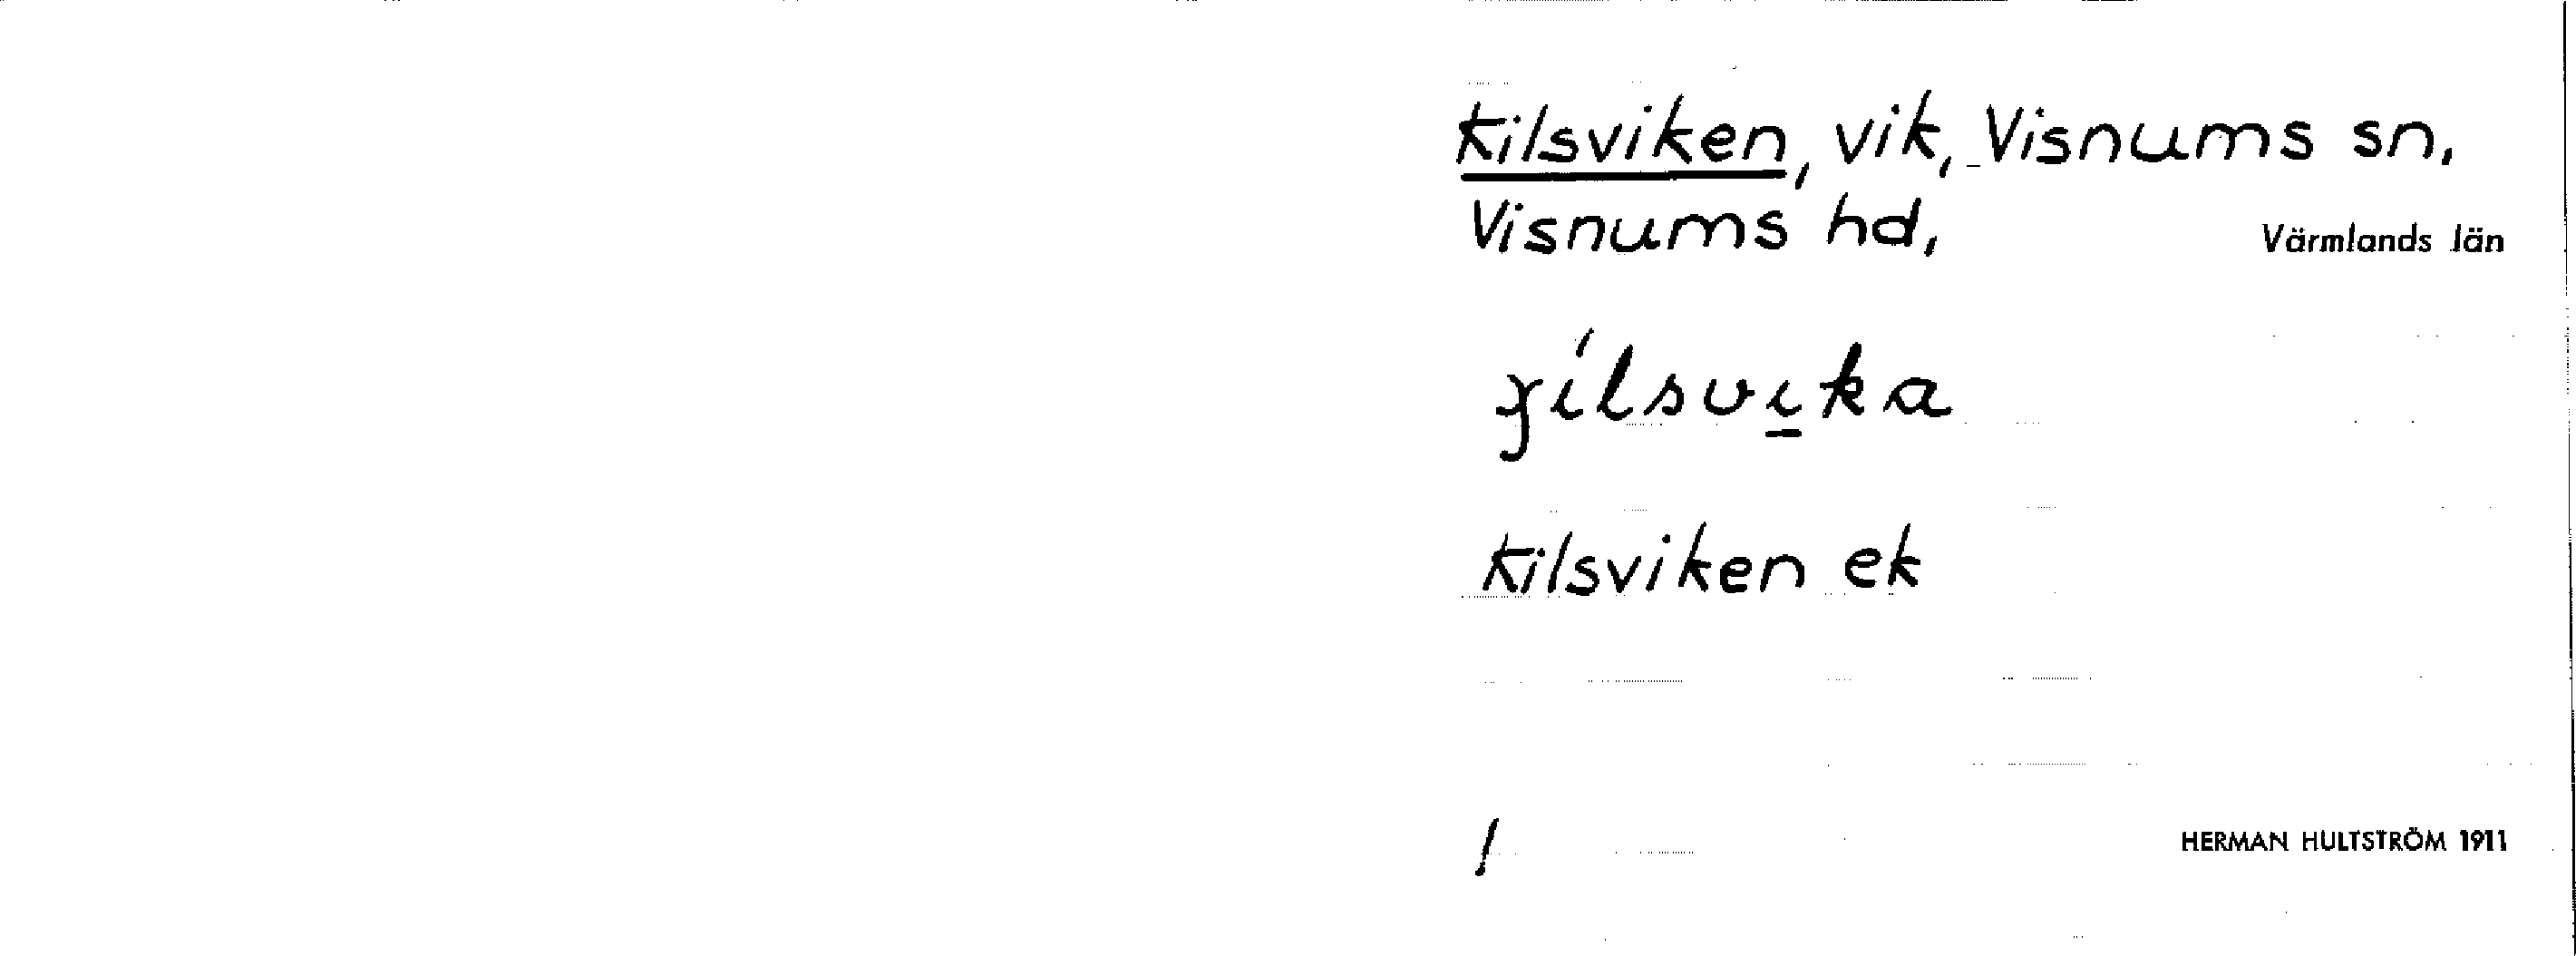 Kilsviken, vik, Visnums sn,
Visnums hd, Värmlands län
Kilsviken ek
1
HERMAN HULTSTRÖM 1911